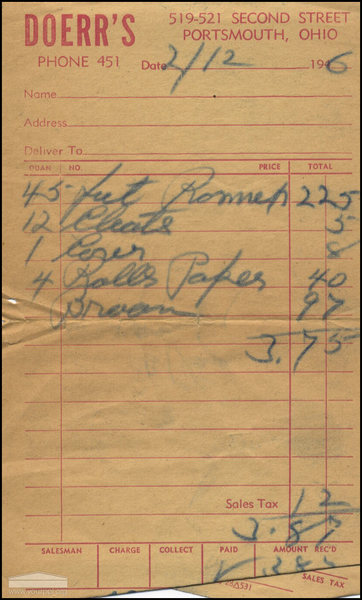 DOERR'S
519-521 SECOND STREET
PORTSMOUTH, OHIO
PHONE 451 Date 2/12 1946
Name
Address
Deliver To
QUAN. NO. PRICE TOTAL
45 Romner 225
12 Cleats 5
1 8
4 Rolls Paper 40
Broom 97
3.75
Sales Tax 12
3.87
SALESMAN CHARGE COLLECT PAID AMOUNT REC'D
SALES TAX